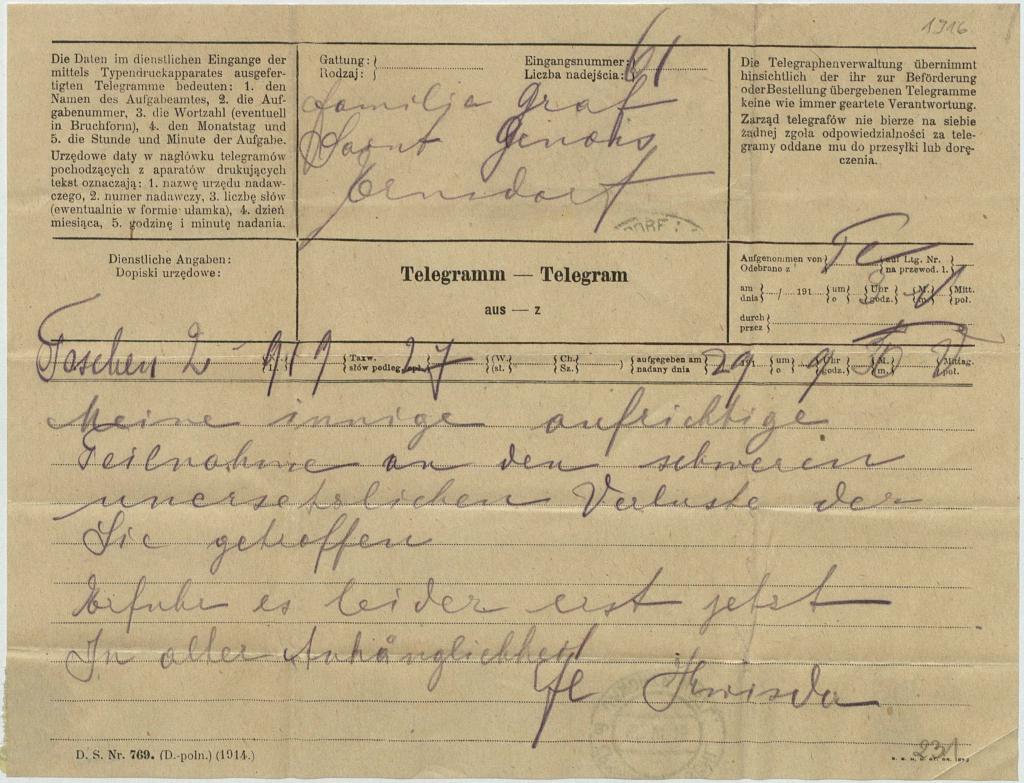 1916
Die Daten im dienstlichen Eingange der
mittels Typendruckapparates ausgefer-
tigten Telegramme bedeuten: 1. den
Namen des Aufgabeamtes, 2. die Auf-
gabenummer, 3. die Wortzahl (eventuell
in Bruchform), 4. den Monatstag und
5. die Stunde und Minute der Aufgabe.
Urzędowe daty w nagłówku telegramów
pochodzących z aparatów drukujących
tekst oznaczają: 1. nazwę urzędu nadaw-
czego, 2. numer nadawczy, 3. liczbę słów
(ewentualnie w formie ułamka), 4. dzień
miesiąca, 5. godzinę i minutę nadania.
Gattung:
Rodzaj:
Eingangsnummer:
Liczba nadejścia:
61
Familie Graf
Saint Genois
Ernsdorf
Die Telegraphenverwaltung übernimmt
hinsichtlich der ihr zur Beförderung
oder Bestellung übergebenen Telegramme
keine wie immer geartete Verantwortung.
Zarząd telegrafów nie bierze na siebie
żadnej zgoła odpowiedzialności za tele-
gramy oddane mu do przesyłki lub dorę-
czenia.
DORF
Dienstliche Angaben:
Dopiski urzędowe:
Telegramm — Telegram
aus — z
Aufgenommen von Te auf Ltg. Nr.
Odebrano z na przewod. l.
am / 191 um Uhr M. Mitt.
dnia o godz. m. poł.
durch
przez
Teschen 2 919 Taxw. 27 (W. Ch. ) aufgegeben am 29 191 um 9 Uhr 50 M. Mittag.
słów podleg. opł. (sł. Sz. nadany dnia o godz. m. poł.
Meine innige aufrichtige
Teilnahme an den schweren
unersetzlichen Verluste der
Sie getroffen
Erfuhr es leider erst jetzt
In alter Anhänglichkeit
D. S. Nr. 769. (D.-poln.) (1914.)
231